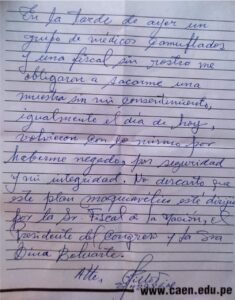 En la tarde de ayer un
grupo de médicos camuflados
y una fiscal sin rostro me
obligaron a sacarme una
muestra sin mi consentimiento,
igualmente el día de hoy,
volvieron con lo mismo por
haberme negado por seguridad
y mi integridad. No descarto que
este plan maquiavélico esté dirigido
por la Sr. Fiscal de la Nación, el
Presidente del Congreso y la Sra
Dina Boluarte.
Atte,
www.caen.edu.pe